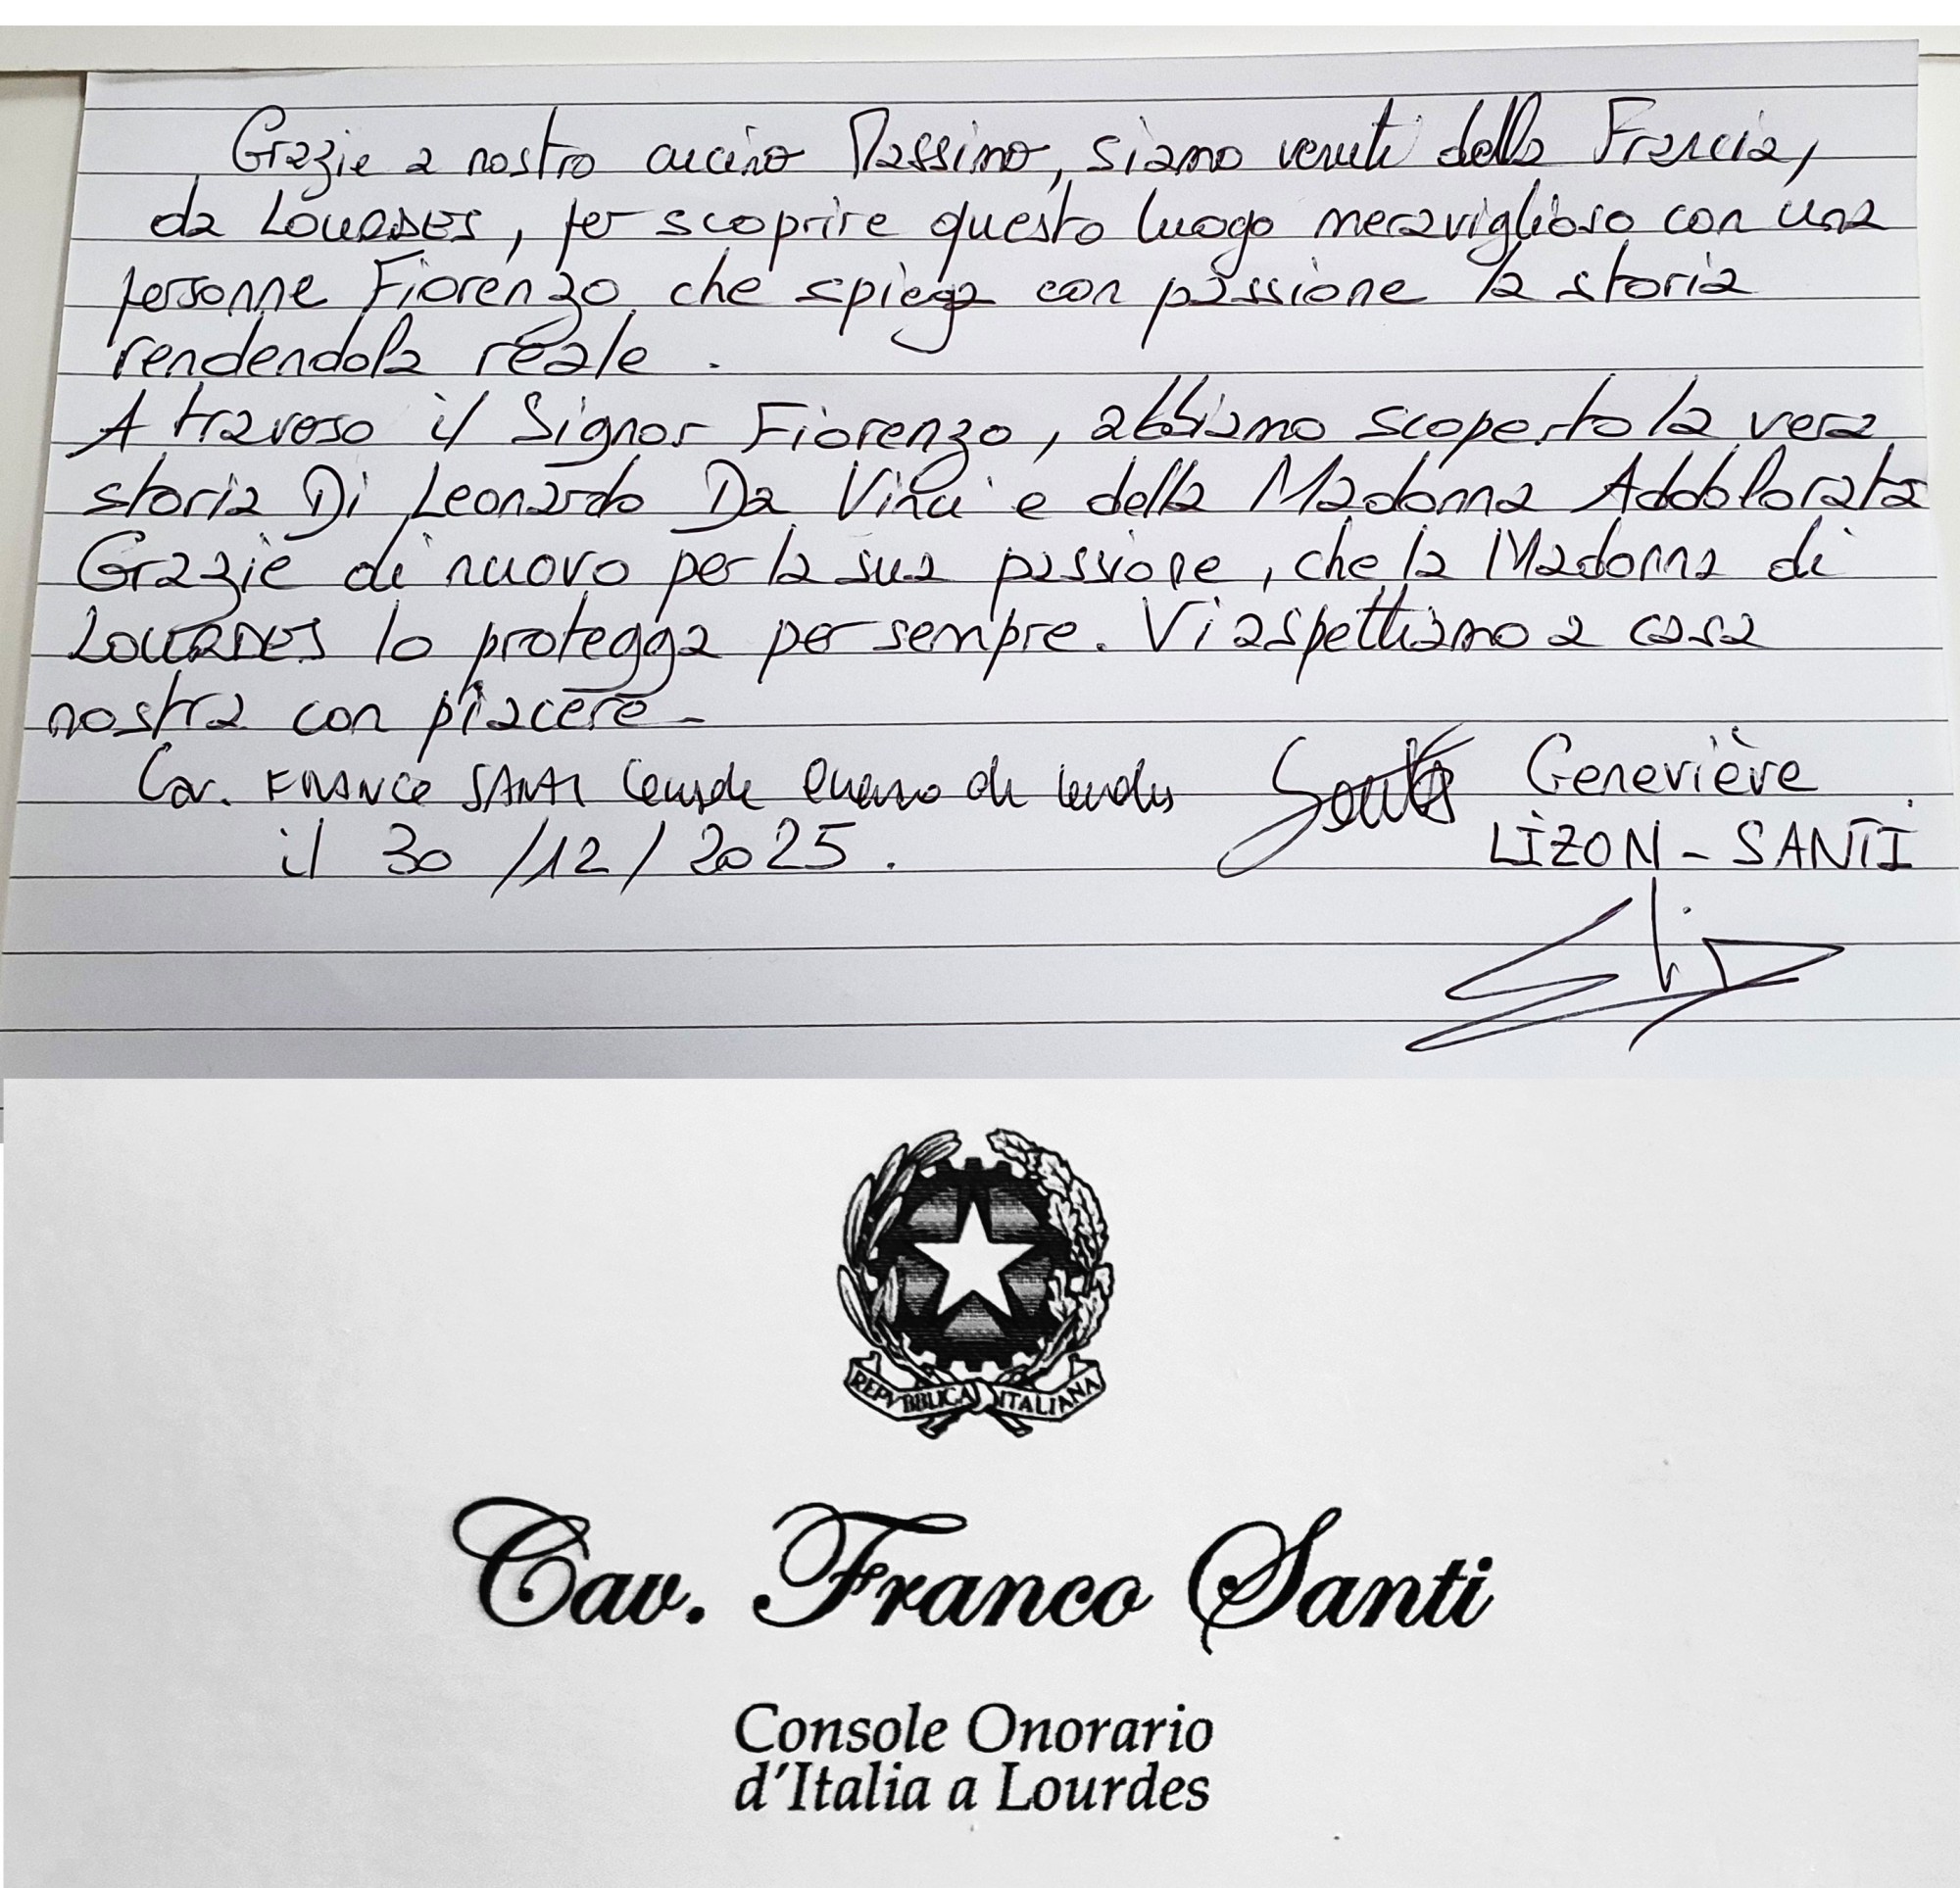 Grazie a nostro cucino Massimo, siamo venuti della Francia,
da LOURDES, per scoprire questo luogo meraviglioso con una
personne Fiorenzo che spiega con passione la storia
rendendola reale.
A traverso il Signor Fiorenzo, abbiamo scoperto la vera
storia Di Leonardo Da Vinci e della Madonna Addolorata
Grazie di nuovo per la sua passione, che la Madonna di
LOURDES lo protegga per sempre. Vi aspettiamo a casa
nostra con piacere -
Cav. FRANCO SANTI Geneviève
il 30/12/2025. LIZON - SANTI
REPVBBLICA ITALIANA
Cav. Franco Santi
Console Onorario
d'Italia a Lourdes